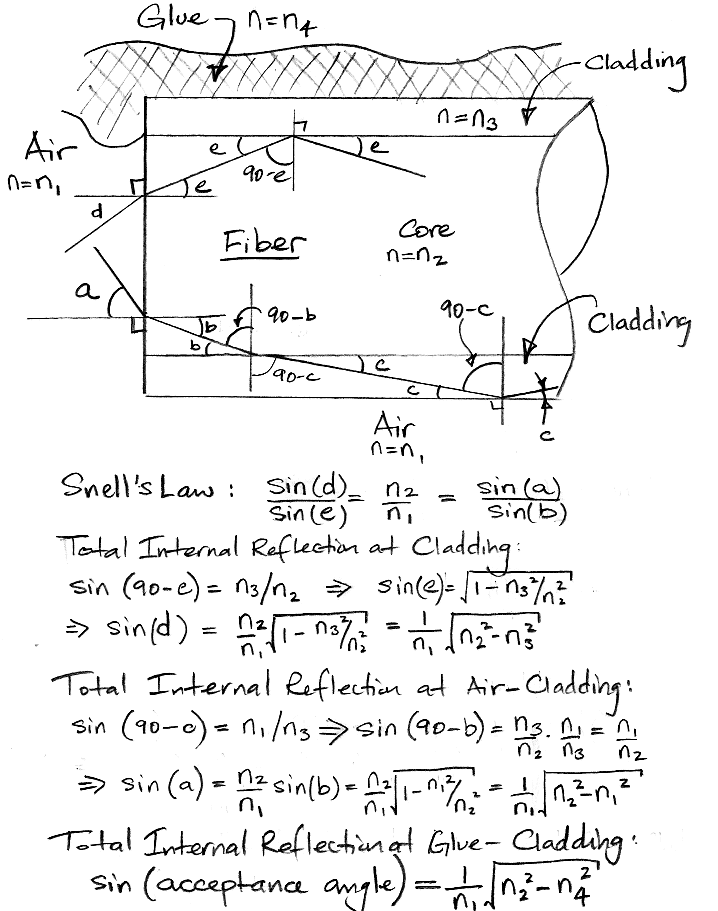 Glue n=n₄
Cladding
n=n₃
Air
n=n₁
e
e
90-e
e
d
Fiber
Core
n=n₂
a
90-b
90-c
b
b
Cladding
90-c
c
c
Air
n=n₁
c
Snell's Law : sin(d)/sin(e) = n₂/n₁ = sin(a)/sin(b)
Total Internal Reflection at Cladding:
sin (90-e) = n₃/n₂ ⇒ sin(e) = √(1-n₃²/n₂²)
⇒ sin(d) = n₂/n₁ √(1-n₃²/n₂²) = 1/n₁ √(n₂²-n₃²)
Total Internal Reflection at Air-Cladding:
sin (90-c) = n₁/n₃ ⇒ sin (90-b) = n₃/n₂ . n₁/n₃ = n₁/n₂
⇒ sin(a) = n₂/n₁ sin(b) = n₂/n₁ √(1-n₁²/n₂²) = 1/n₁ √(n₂²-n₁²)
Total Internal Reflection at Glue-Cladding:
sin (acceptance angle) = 1/n₁ √(n₂²-n₄²)